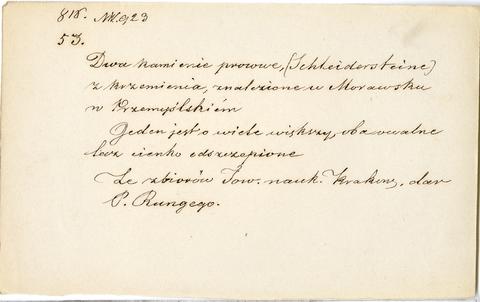 818. NN.923
53.
Dwa kamienie procowe, (Schleidersteine)
z krzemienia, znalezione w Morawsku
w Przemyślskiém
Jeden jest o wiele większy, oba owalne
lecz cienko odszczepione
Ze zbiorów Tow. nauk. Krakow. dar
P. Rungego.